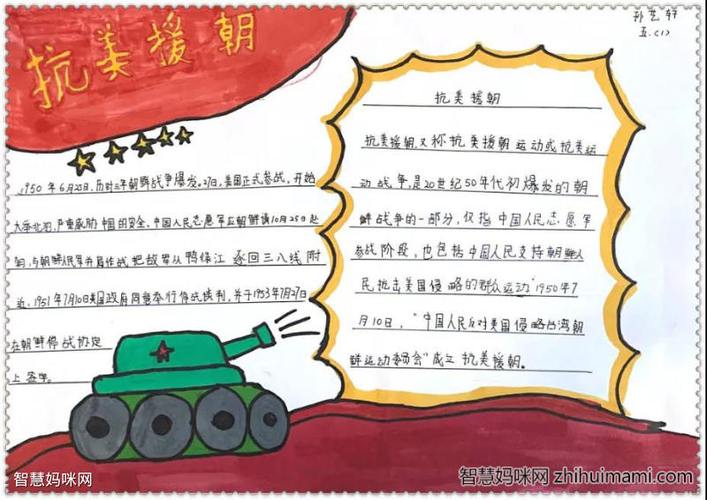 抗美援朝
孙艺轩
五.(1)
1950年6月25日,历时三年朝鲜战争爆发。27日,美国正式参战,开始
大举北犯,严重威胁中国的安全,中国人民志愿军应朝鲜请10月25日赴
朝,与朝鲜人民军并肩作战把敌军从鸭绿江逐回三八线附
近,1951年7月10日美国政府同意举行停战谈判,并于1953年7月27日
在朝鲜停战协定
上签字。
抗美援朝
抗美援朝,又称抗美援朝运动或抗美运
动战争,是20世纪50年代初爆发的朝
鲜战争的一部分,仅指中国人民志愿军
参战阶段,也包括中国人民支持朝鲜人
民抗击美国侵略的群众运动"1950年7
月10日,"中国人民反对美国侵略台湾朝
鲜运动委员会"成立 抗美援朝。
智慧妈咪网
智慧妈咪网 zhihuimami.com